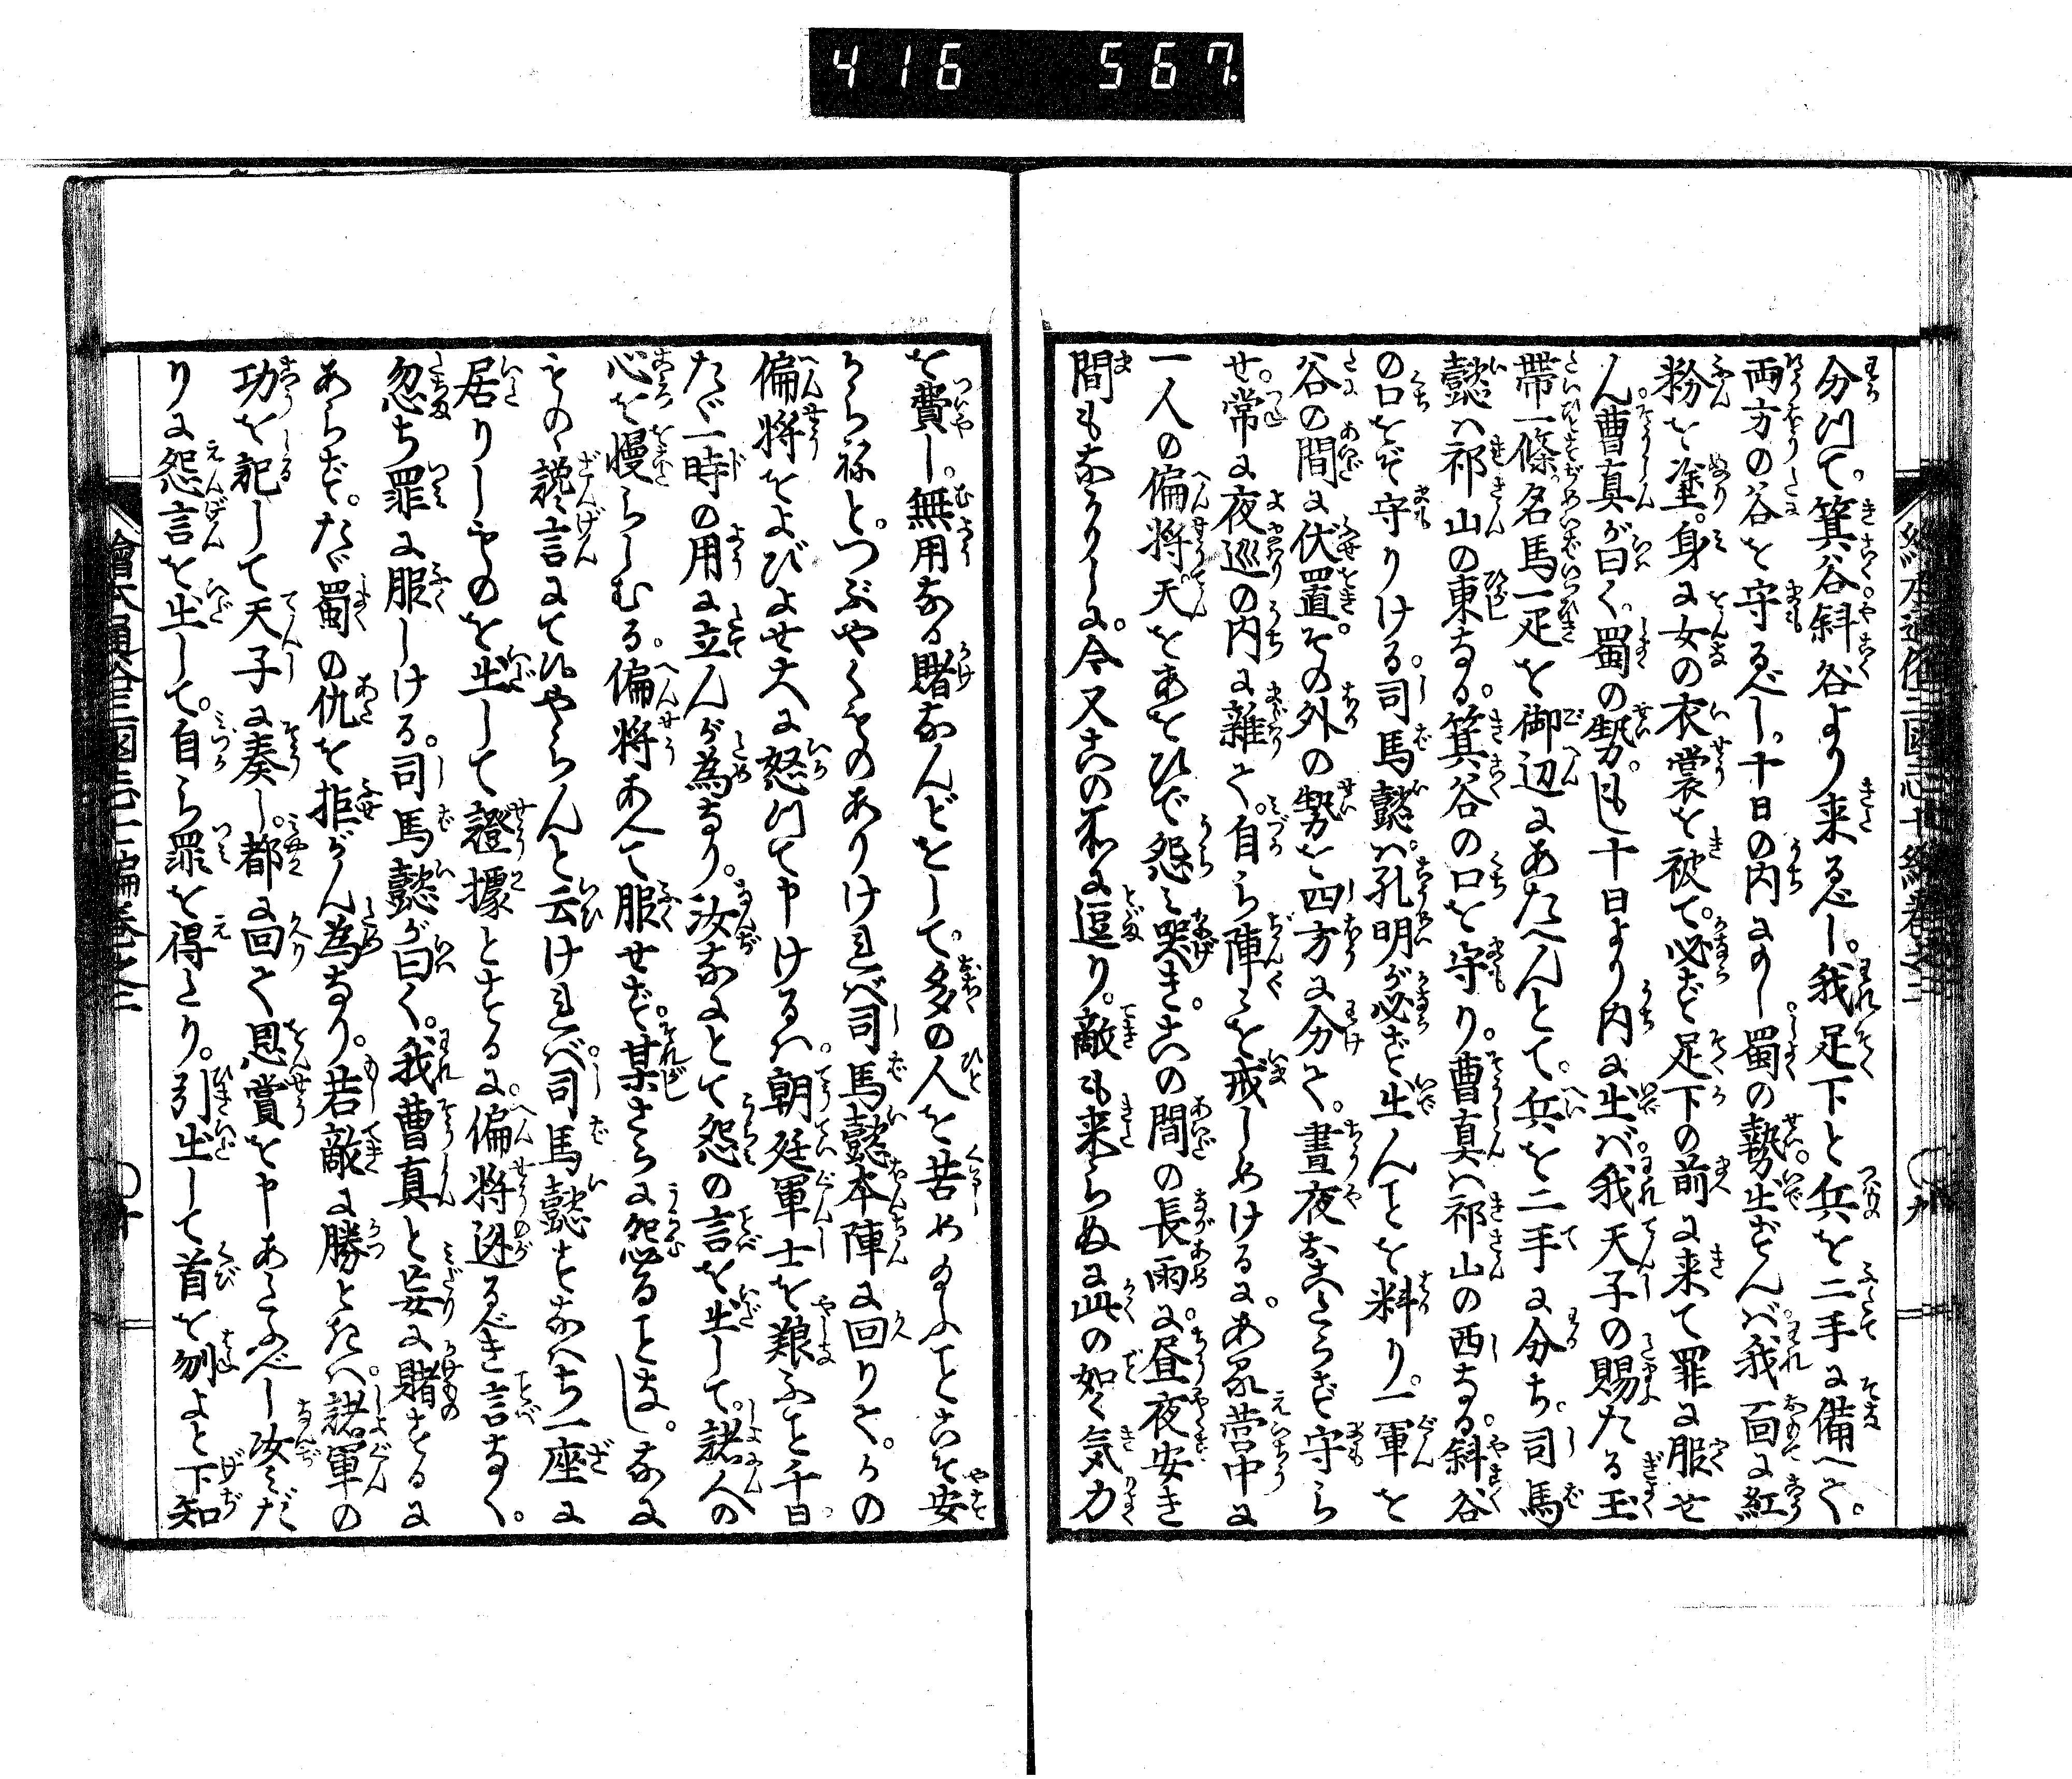 416 567
繪本通俗三國志七編卷之三
九
分ツて。箕谷。斜谷より来るべし。我足下と兵を二手に備へて。
両方の谷を守るべし。十日の内にもし蜀の勢出ずんば。我面に紅
粉を塗。身に女の衣裳を被て。必ず足下の前に来て罪に服せ
ん。曹真が曰く。蜀の勢。もし十日より内に出ば。我天子の賜たる玉
帶一條。名馬一疋を御辺にあたへんとて。兵を二手に分ち。司馬
懿ハ祁山の東なる。箕谷の口を守り。曹真ハ祁山の西なる。斜谷
の口をぞ守りける。司馬懿ハ。孔明が必ず出んことを料り。一軍を
谷の間に伏置。その外の勢を四方に分て。晝夜おこたらず守ら
せ。常に夜巡の内に雜て。自ら陣々を戒しめけるに。ある営中に
一人の偏将。天をあをひで怨ミ哭き。この間の長雨に。昼夜安き
間もなかりしに。今又この所に逗り。敵も来らぬに此の如く気力
を費し。無用なる賭なんどをして。多の人を苦め給ふことこそ安
からねと。つぶやくものありければ司馬懿本陣に回りて。かの
偏将をよびよせ大に怒ツて申けるハ。朝廷軍士を養ふこと千日
たゞ一時の用に立んが為なり。汝なにとて怨の言を出して。諸人の
心を慢らしむる。偏将あへて服せず。某さらに怨ることなし。なに
ものゝ讒言にてひやらんと云ければ。司馬懿すなハち一座に
居りしものを出して證據とするに。偏将遁るべき言なく。
忽ち罪に服しける。司馬懿が曰く。我曹真と妄に賭をするに
あらず。たゞ蜀の仇を拒がん為なり。若敵に勝ときハ。諸軍の
功を記して天子に奏し。都に回て恩賞を申あたふべし汝ミだ
りに怨言を出して。自ら罪を得たり。引出して首を刎よと下知
繪本通俗三國志七編卷之三
十